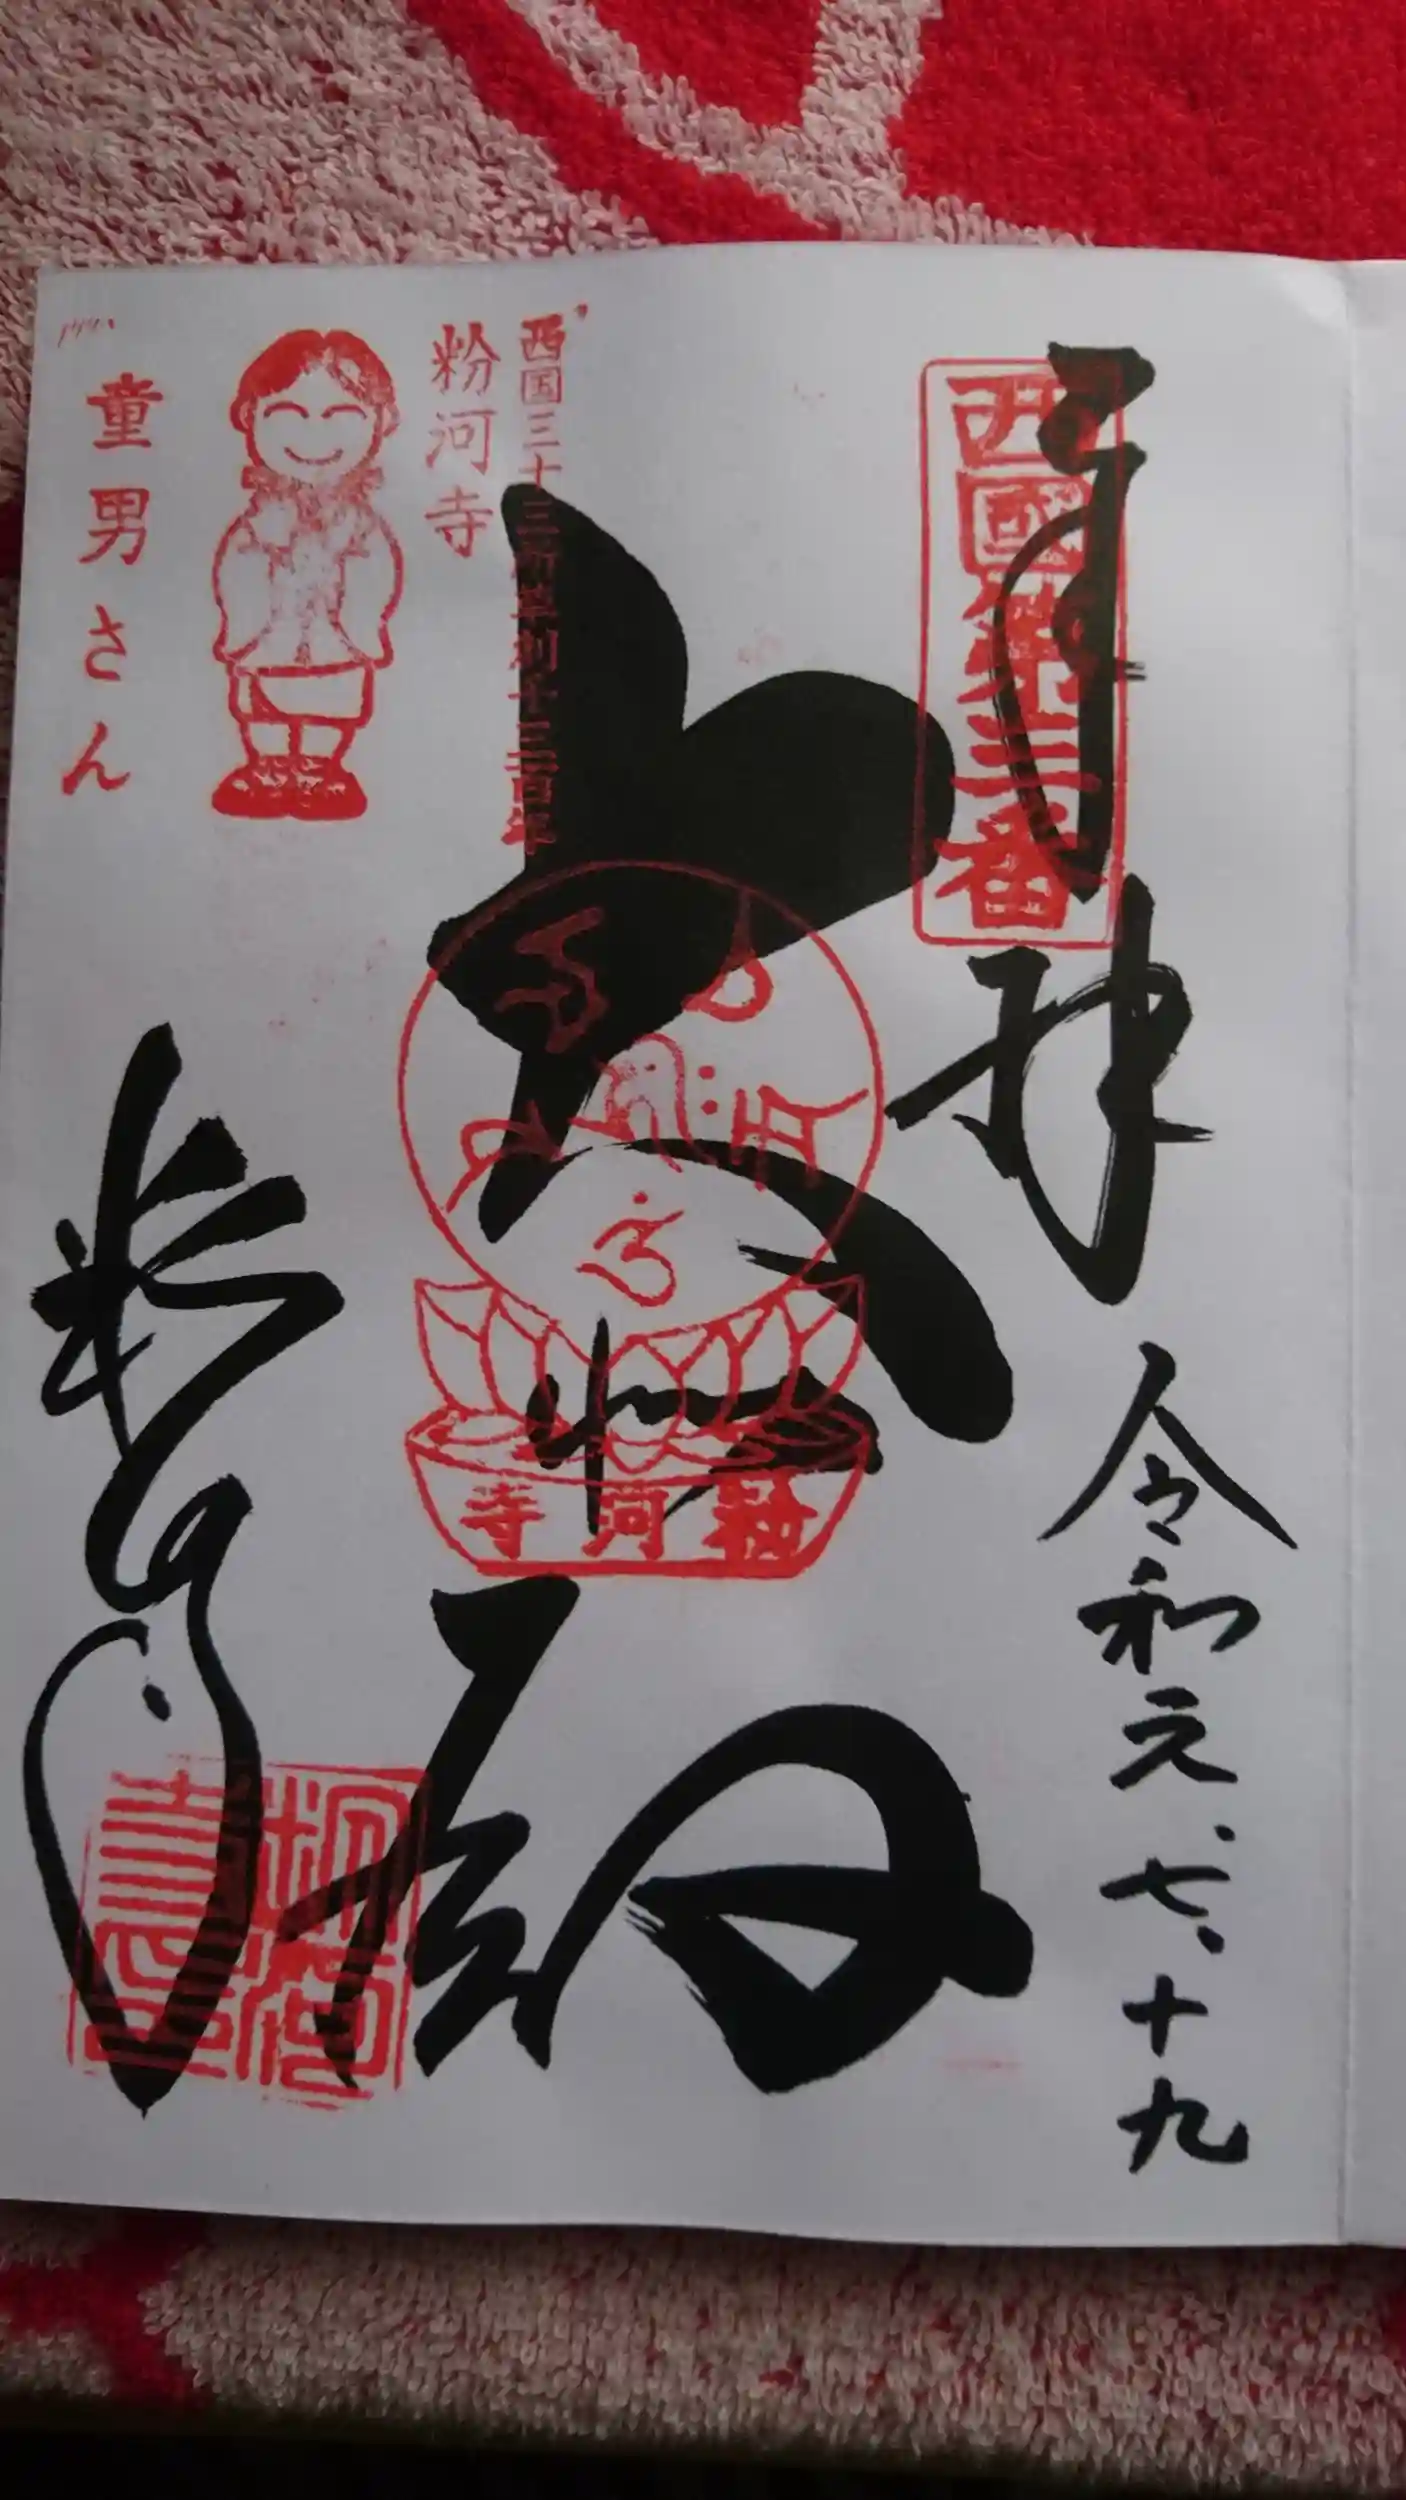 奉拝
西國第三番
令和元、七、十九
大悲殿
粉河寺
西国三十三所草創千三百年
粉河寺
童男さん
粉河寺
粉河寺印